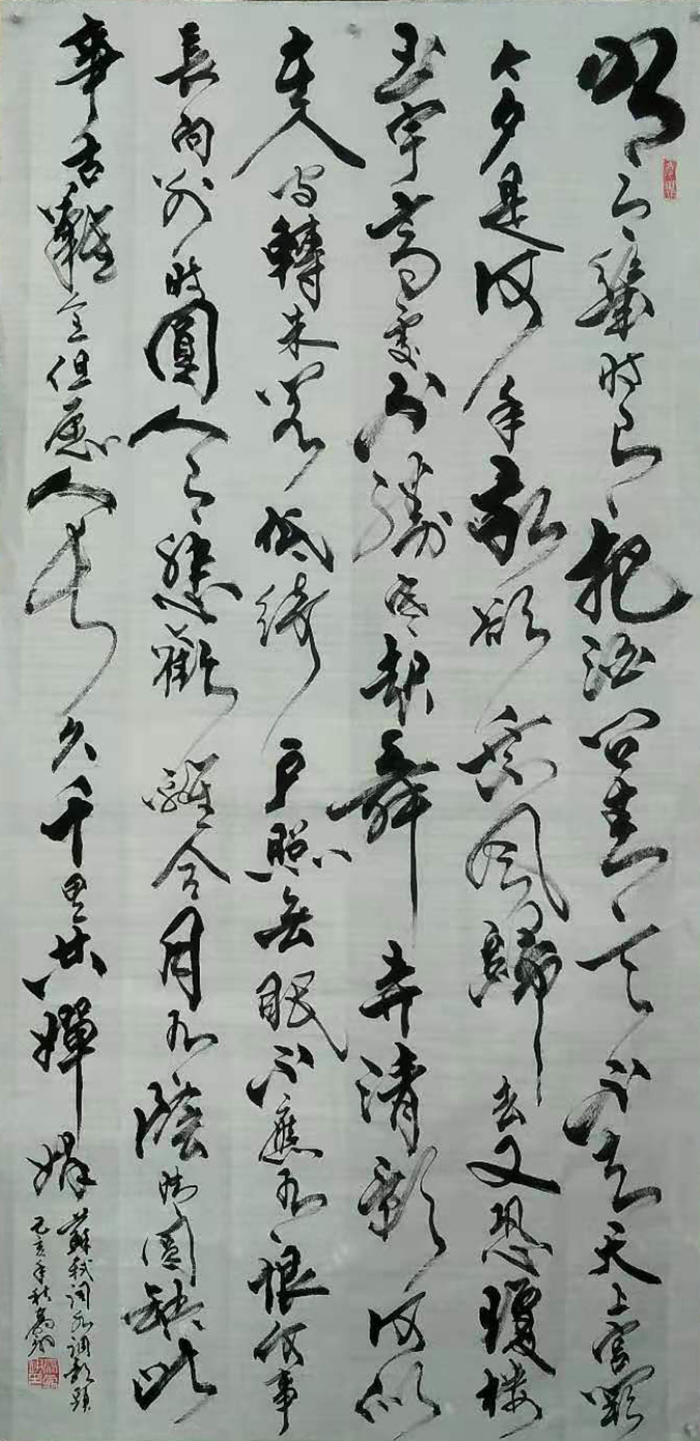 明月幾時有把酒問青天不知天上宮闕
今夕是何年我欲乘風歸去又恐瓊樓
玉宇高處不勝寒起舞弄清影何似
在人間轉朱閣低綺戶照無眠不應有恨何事
長向別時圓人有悲歡離合月有陰晴圓缺此
事古難全但願人長久千里共嬋娟
蘇軾詞水調歌頭
己亥年秋